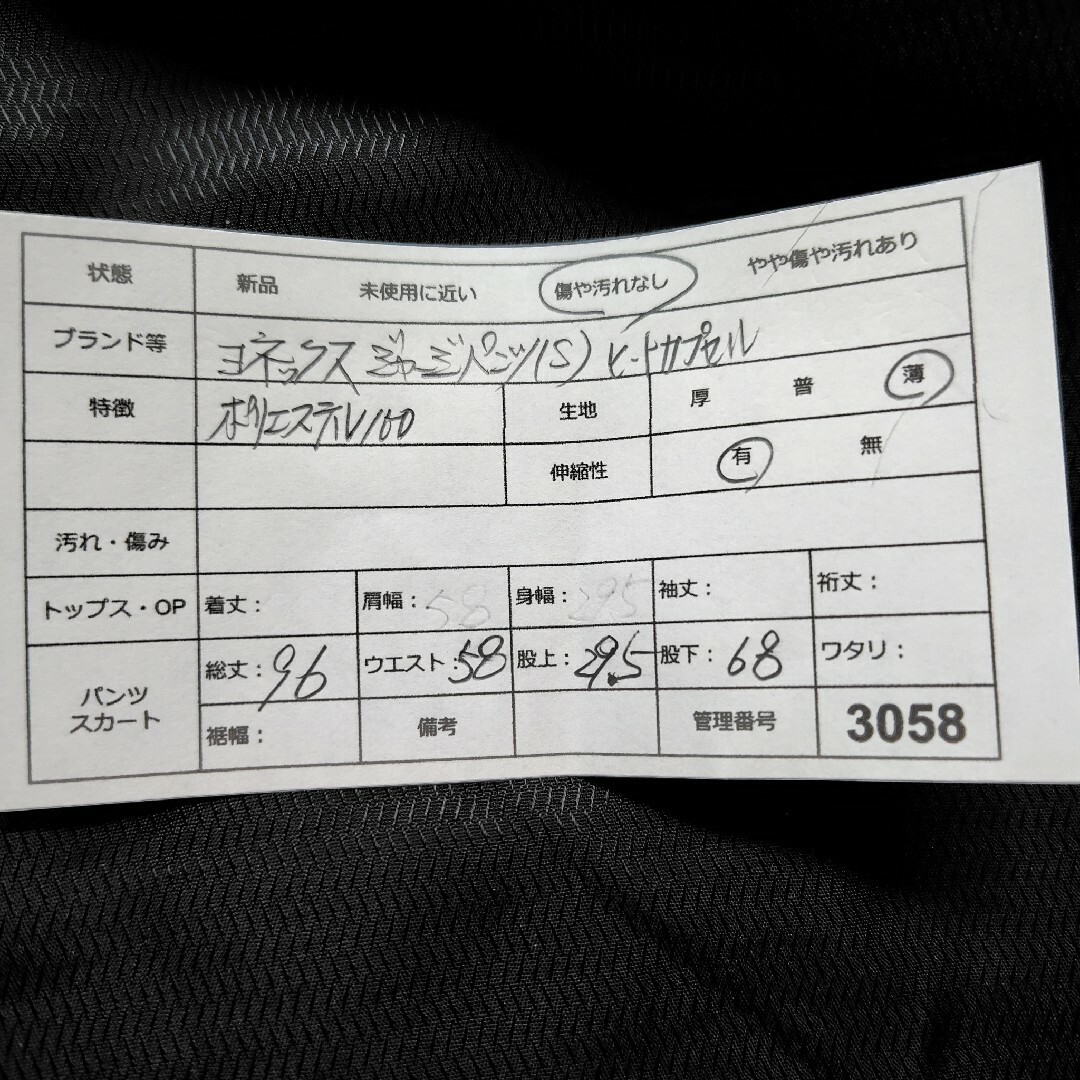 状態 新品 未使用に近い 傷や汚れなし やや傷や汚れあり
ブランド等 ヨネックス ジャージパンツ(S) ヒートカプセル
特徴 ポリエステル100 生地 厚 普 薄
伸縮性 有 無
汚れ・傷み
トップス・OP 着丈： 肩幅：58 身幅：295 袖丈： 裄丈：
パンツ スカート 総丈：96 ウエスト：58 股上：29.5 股下：68 ワタリ：
裾幅： 備考 管理番号 3058